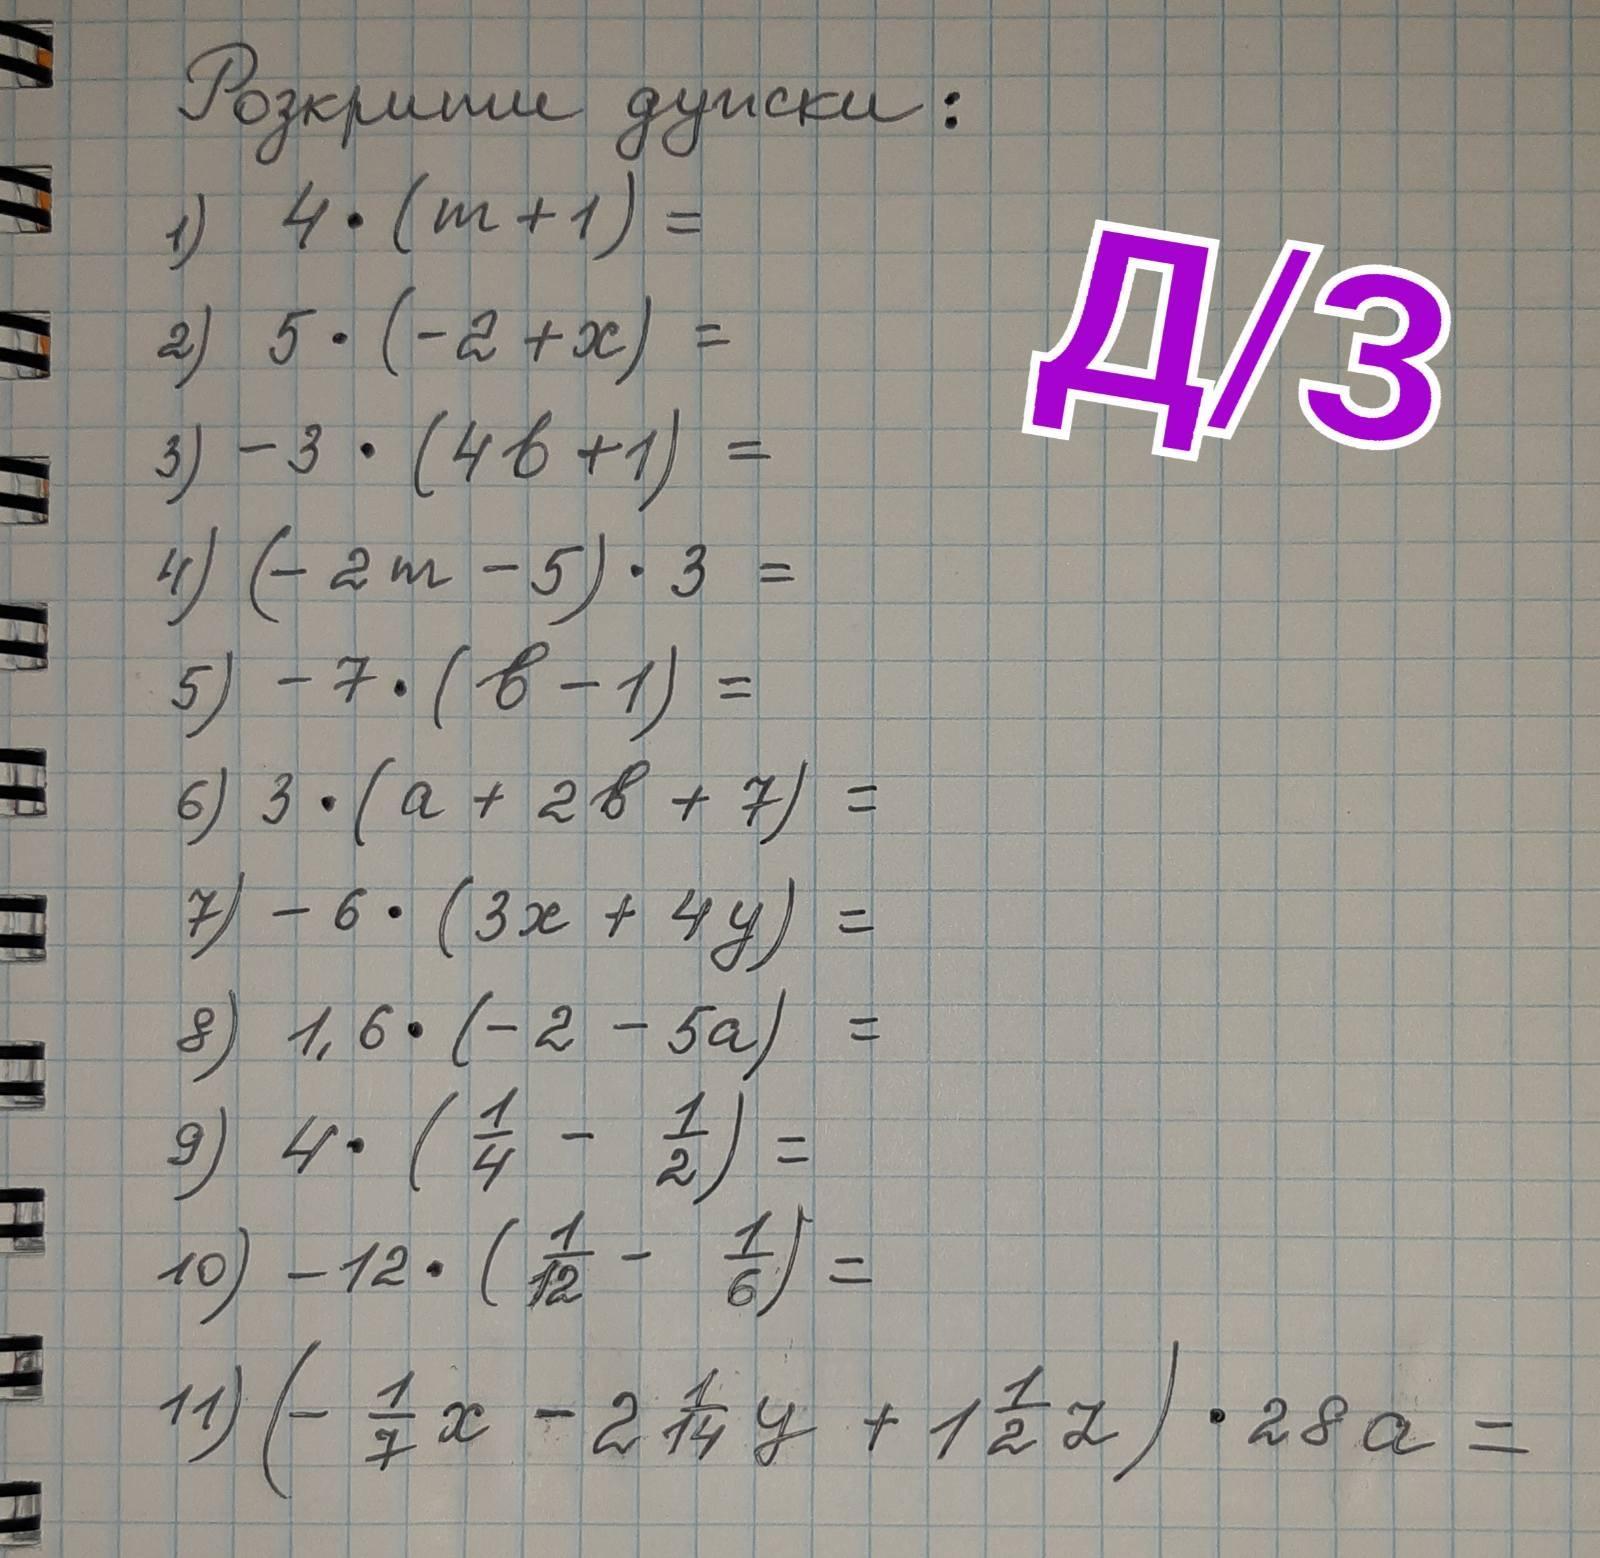 Розкрити дужки:
1) 4·(m+1)=
2) 5·(-2+x)=
3) -3·(4b+1)=
4) (-2m-5)·3=
5) -7·(b-1)=
6) 3·(a+2b+7)=
7) -6·(3x+4y)=
8) 1,6·(-2-5a)=
9) 4·(1/4-1/2)=
10) -12·(1/12-1/6)=
11) (-1/7x-2 1/14y+1 1/2z)·28a=
Д/З